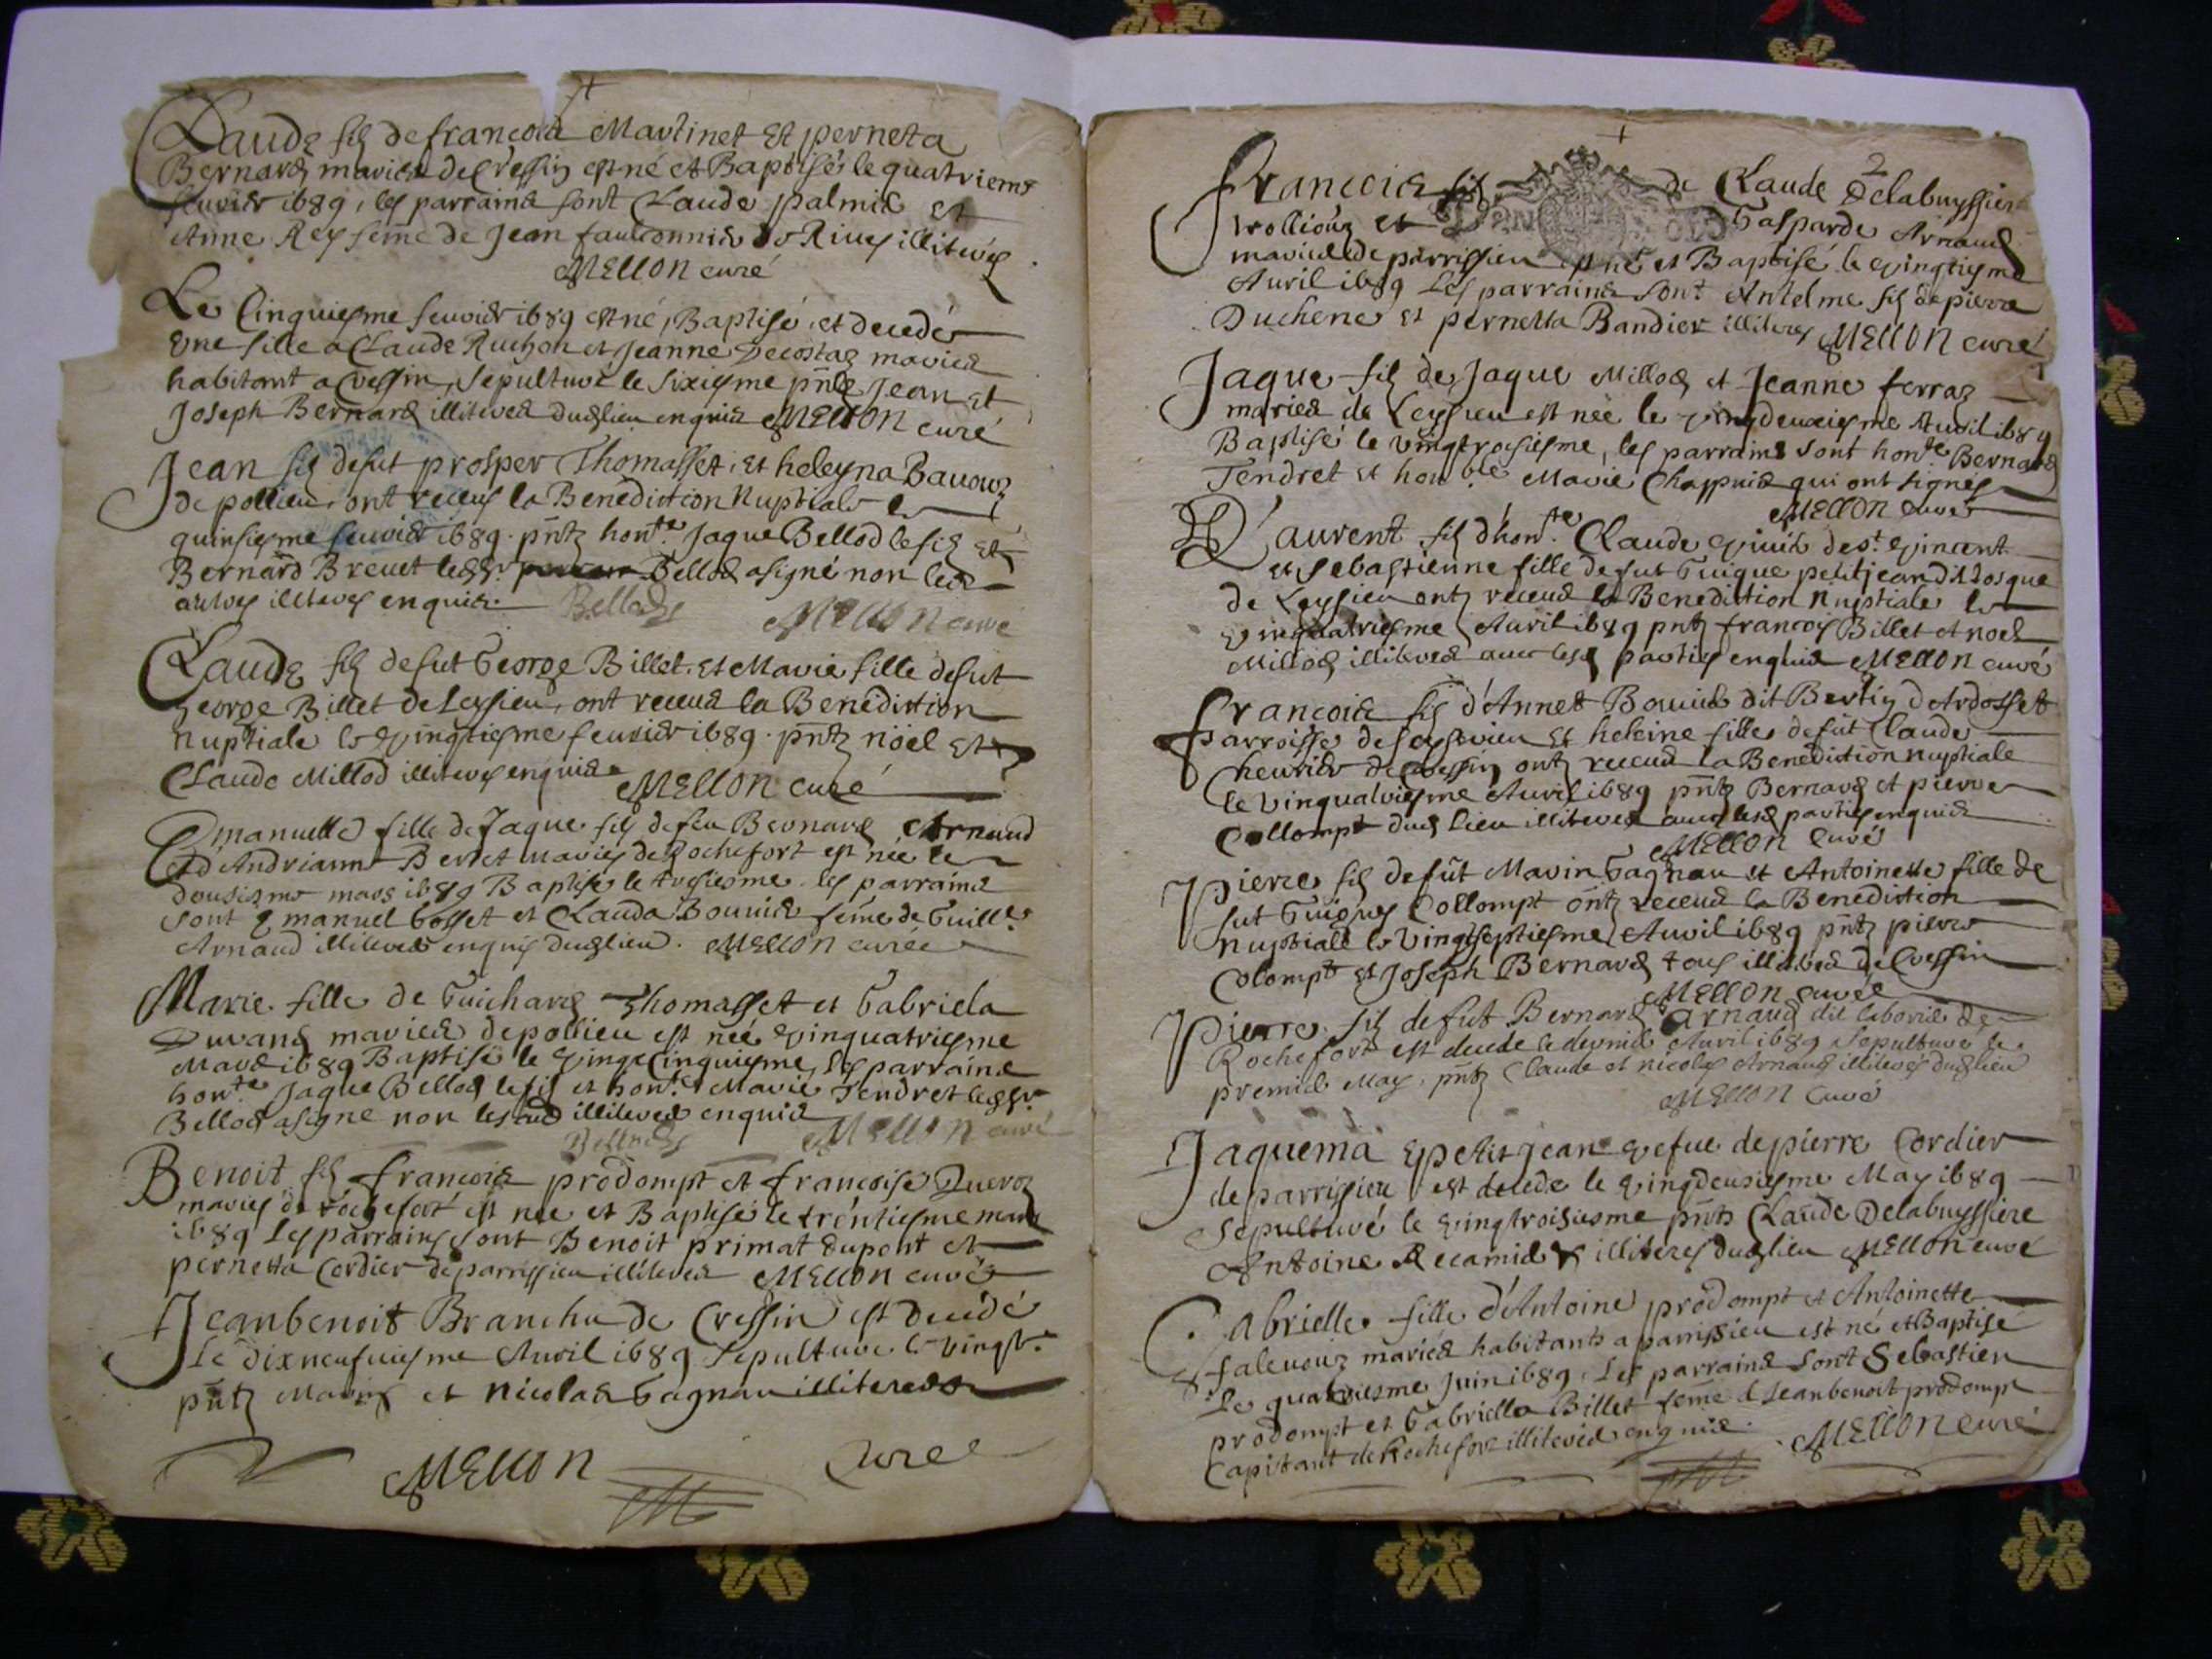 Claude fils de francois Martinet et perneta
Bernard mariés de Cressin est né et Baptisé le quatrieme
feuvier 1689, les parrains sont Claude palmier et
Anne Rey femē de Jean fauconnier illiterés
MELLON curé
Le Cinquiesme feuvier 1689 est né, Baptisé, et decedé
Une fille a Claude Ruchon et Jeanne Decostaz mariés
habitant a Cressin, Sepulturé le Sixiesme pñts Jean et
Joseph Bernard illiterés dudlieu enquis MELLON curé
Jean fils defut prosper Thomasset, et heleyna
de pollieu, ont receus la Benediction Nuptiale le
quinsiesme feuvier 1689. pñtz honte. Jaque Bellod le fils et
Bernard Brevet Bellod asigné non les
autres illiteres enquis. Bellod MELLON curé
Claude fils defut George Billet, et Marie fille defut
George Billet de Leysieu, ont receus la Benediction
Nuptiale le vingtiesme feuvier 1689. pñtz nöel et
Claude Millod illiteres enquis MELLON curé
Emanuelle fille de Jaque fils de feu Bernard Arnaud
Et d'Andrianne Berret mariés de Rochefort est née le
dousiesme mars 1689 Baptisé le tresiesme. les parrains
sont Emanuel Gosset et Clauda Bouvier femē de Guille.
Arnaud illiterés enquis dudlieu. MELLON curée
Marie fille de Guichard Thomasset et Gabriela
Durand mariés de pollieu est née vinquatriesme
Mars 1689 Baptisé le vingtcinquiesme, les parrains
honte. Jaque Bellod le fils et honte. Marie Tendret
Bellod asigné non les illiterés enquis
Bellod MELLON curé
Benoit fils francois prodompt et francoise Queroz
mariés de rochefort est née et Baptisé le trentiesme mars
1689 Les parrains sont Benoit primat dupont et
pernetta Cordier de parrissieu illiterés MELLON curé
Jeanbenoit Branchu de Cressin est decédé
Le dixneufuiesme Avril 1689 Sepulture le vingt.
pñtz Marin et nicolas Gagnau illiteres
MELLON Curé
2
francois fils de Claude Delabuyssiere
trolliouz et Gasparde Arnaud
mariés de parrissieu est né et Baptisé le vingtiesme
Auril 1689 Les parrains sont Antelme fils de pierre
Duchene et pernetta Bandier illiteres MELLON curé
Jaque fils de Jaque Millod et Jeanne ferraz
mariés de Leysieu est née le vingdeuxiesme Auril 1689
Baptisé le vingtroisiesme, les parrains sont honte. Bernard
Tendret et honble Marie Chappuis qui ont signés
MELLON curé
Laurent fils d'honte. Claude de st. vincent
et Sebastienne fille defut Guigue petitjean dit Josque
de Leysieu ontz receus la Benediction Nuptiale le
vinquatriesme Auril 1689 pntz francois Billet et noel
Millod illiterés auec lesd parties enquis MELLON curé
francois fils d'Annet Bouvier dit Bertin d'Ardosset
Parroisse de et heleine fille defut Claude
cheurier de Cressin ontz receus la Benediction nuptiale
le vinquatriesme Auril 1689 pñtz Bernard et pierre
Collompt dud Lieu illiteres auec lesd parties enquis
MELLON Curé
Pierre fils defut Marin Gagnau et Antoinette fille de
fut Guigues Collompt ontz receus la Benediction
Nuptiale le vingtseptiesme Auril 1689 pñtz pierre
Colompt et Joseph Bernard tous illiterés de Cressin
MELLON curé
Pierre fils defut Bernard Arnaud dit de
Rochefort est decede le dernier Auril 1689 Sepulture le
premier May, pñtz Claude et nicolas Arnaud illiteres dudlieu
MELLON Curé
Jaquema petitjean vefue de pierre Cordier
de parrissieu est decede le vingdeusiesme May 1689
Sepulturé le vingtroisiesme pñts Claude Delabuyssiere
Antoine Recamier illiteres dudlieu MELLON curé
Gabrielle fille d'Antoine prodompt et Antoinette
falevouz mariés habitants a parrissieu est né et Baptisé
Le quatriesme Juin 1689, Les parrains sont Sebastien
prodompt et Gabriella Billet femē d Jeanbenoit prodompt
Capitant de Rochefort illiterés enquis. MELLON curé